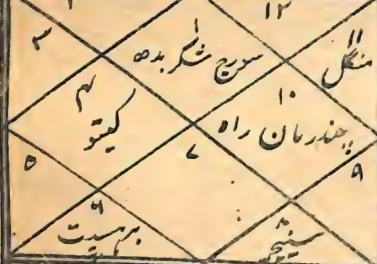 ۱۲
۱
۳ سورج شکر بدھ ۱۱ منگل
۴ ۱۰
کیتو چندرمان راہ
۷
۵ ۹
۶ ۸
برہسپت سنیچر